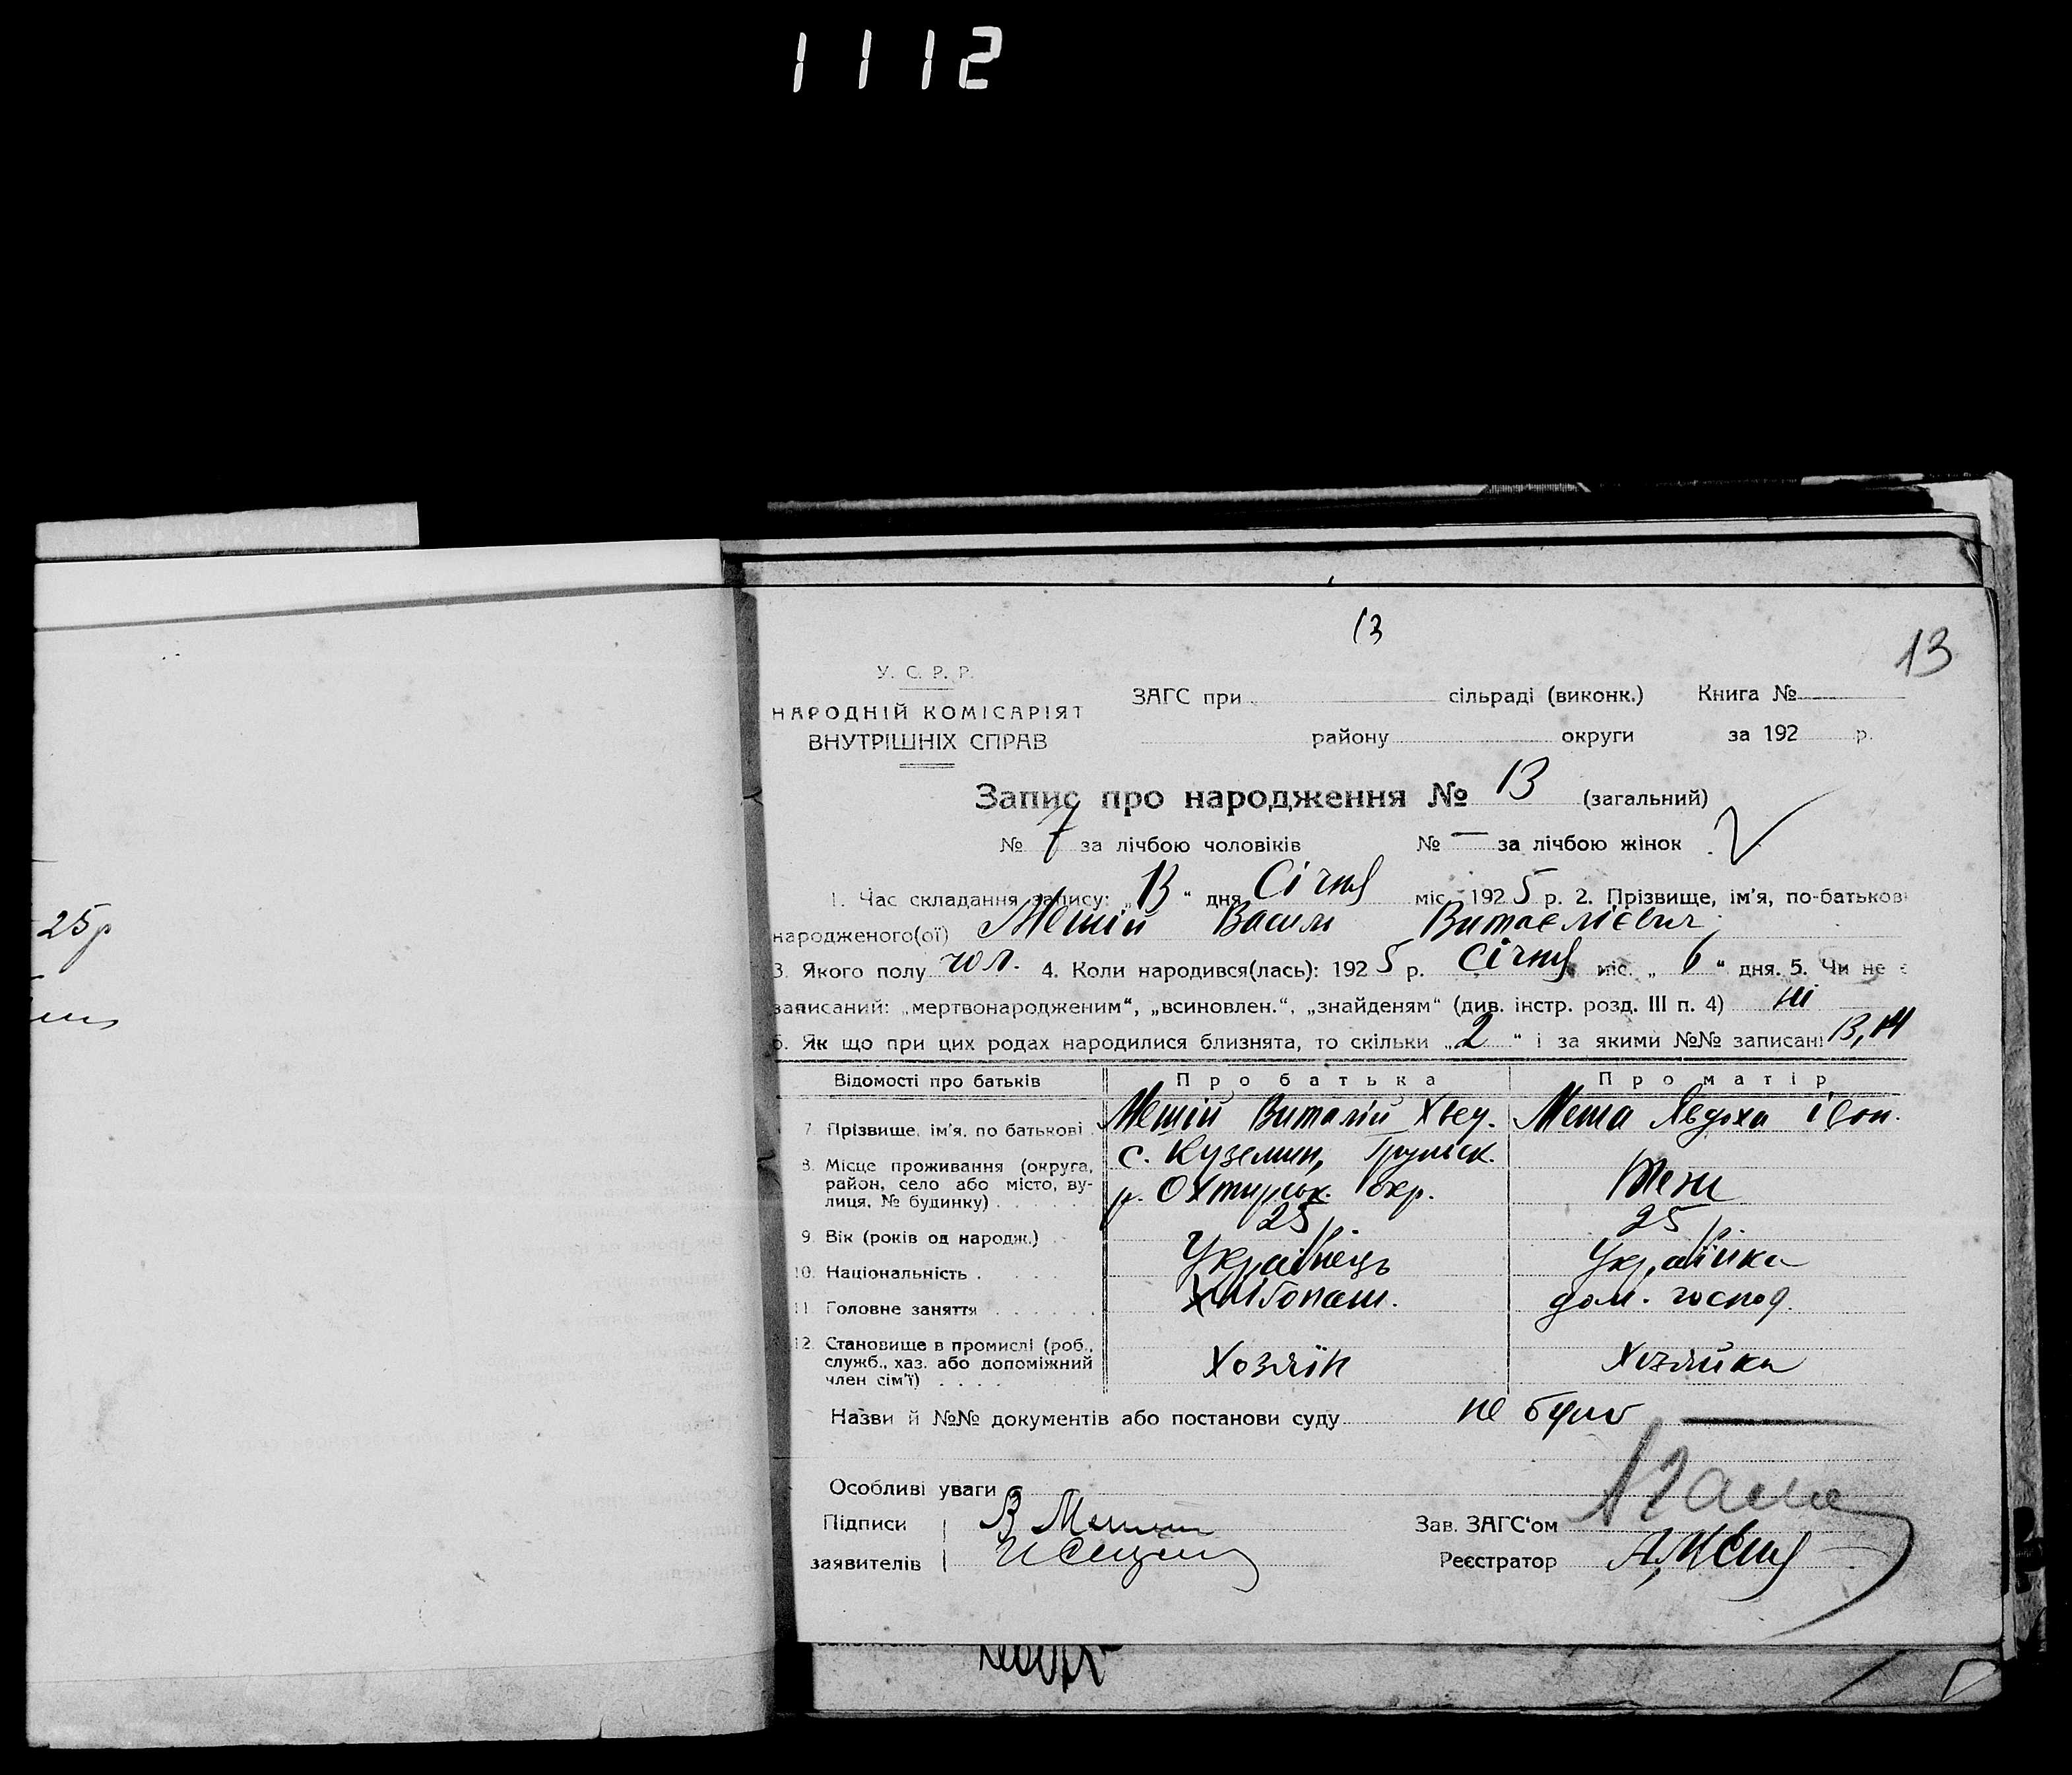 1112
13
13
У. С. Р. Р.
НАРОДНІЙ КОМІСАРІЯТ
ВНУТРІШНІХ СПРАВ
ЗАГС при сільраді (виконк.) Книга №
району округи за 192 р.
Запис про народження № 13 (загальний)
№ 7 за лічбою чоловіків № — за лічбою жінок
1. Час складання запису: „13“ дня Січня міс. 1925 р. 2. Прізвище, ім'я, по-батькові
народженого(ої) Мешій Василь
3. Якого полу чол. 4. Коли народився(лась): 1925 р. Січня міс. „6“ дня. 5. Чи не є
записаний: „мертвонародженим“, „всиновлен.“, „знайденям“ (див. інстр. розд. III п. 4) ні
6. Як що при цих родах народилися близнята, то скільки „2“ і за якими №№ записані 13, 14
Відомості про батьків Про батька Про матір
7. Прізвище, ім'я, по батькові Мешій Виталій Хвед. Меша Явдоха Іван.
8. Місце проживання (округа, район, село або місто, вулиця, № будинку) с. Куземин, Грунськ. р. Охтирськ. окр.
9. Вік (років од народж.) 25 р. 25 р.
10. Національність Українець Українка
11. Головне заняття Хлібопаш. дом. господ.
12. Становище в промислі (роб., служб., хаз. або допоміжний член сім'ї) Хозяїн Хозяйка
Назви й №№ документів або постанови суду не було
Особливі уваги
Підписи В Мешій
заявителів
Зав. ЗАГС'ом
Реєстратор
25р